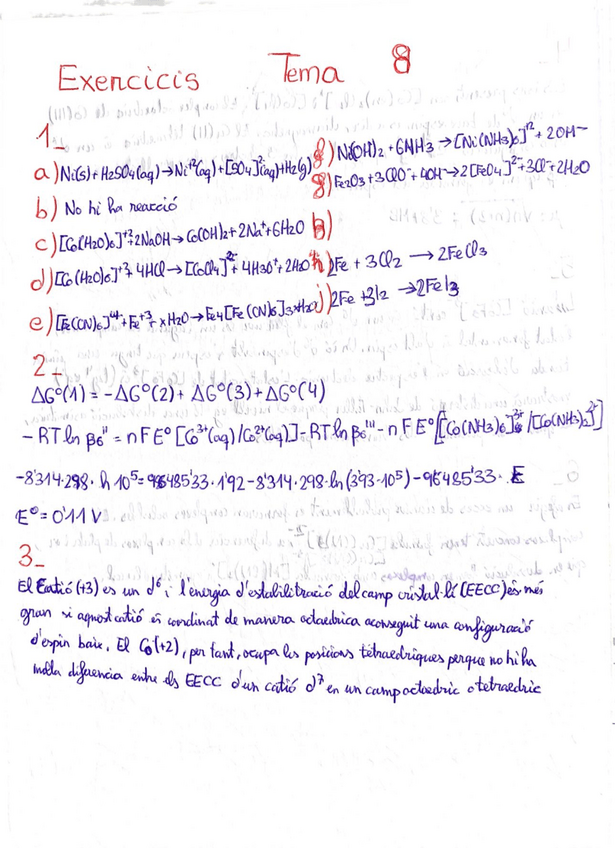 Exercicis Tema 8
1_
a) Ni(s) + H2SO4(aq) → Ni+2(aq) + [SO4]2-(aq) + H2(g)
b) No hi ha reacció
c) [Co(H2O)6]+2 + 2NaOH → Co(OH)2 + 2Na+ + 6H2O
d) [Co(H2O)6]+2 + 4HCl → [CoCl4]2- + 4H3O+ + 2H2O
e) [Fe(CN)6]4- + Fe+3 + xH2O → Fe4[Fe(CN)6]3·xH2O
f) Ni(OH)2 + 6NH3 → [Ni(NH3)6]+2 + 2OH-
g) Fe2O3 + 3ClO- + 4OH- → 2[FeO4]2- + 3Cl- + 2H2O
h)
2Fe + 3Cl2 → 2FeCl3
j) 2Fe + 3I2 → 2FeI3
2_
ΔGº(1) = -ΔGº(2) + ΔGº(3) + ΔGº(4)
- RT ln β6II = nFEº[Co3+(aq)/Co2+(aq)] - RT ln β6III - nFEº[[Co(NH3)6]3+/[Co(NH3)6]2+]
-8'314·298·ln 10^5 = 96485'33·1'92 - 8'314·298·ln(3'93·10^5) - 96485'33·E
Eº = 0'11 V
3_
El Catió (+3) es un d6 i l'energia d'estabilització del camp cristal·lí (EECC) és més
gran si aquest catió és coordinat de manera octaedrica aconseguit una configuració
d'espin baix. El Co(+2), per tant, ocupa les posicions tetraedriques perque no hi ha
molta diferencia entre els EECC d'un catió d7 en un camp octaedric o tetraedric